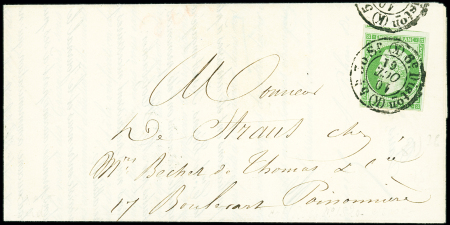 Monsieur
De Straus chez
Mrs Bechet de Thomas & Cie
17 Boulevart Poissonnière